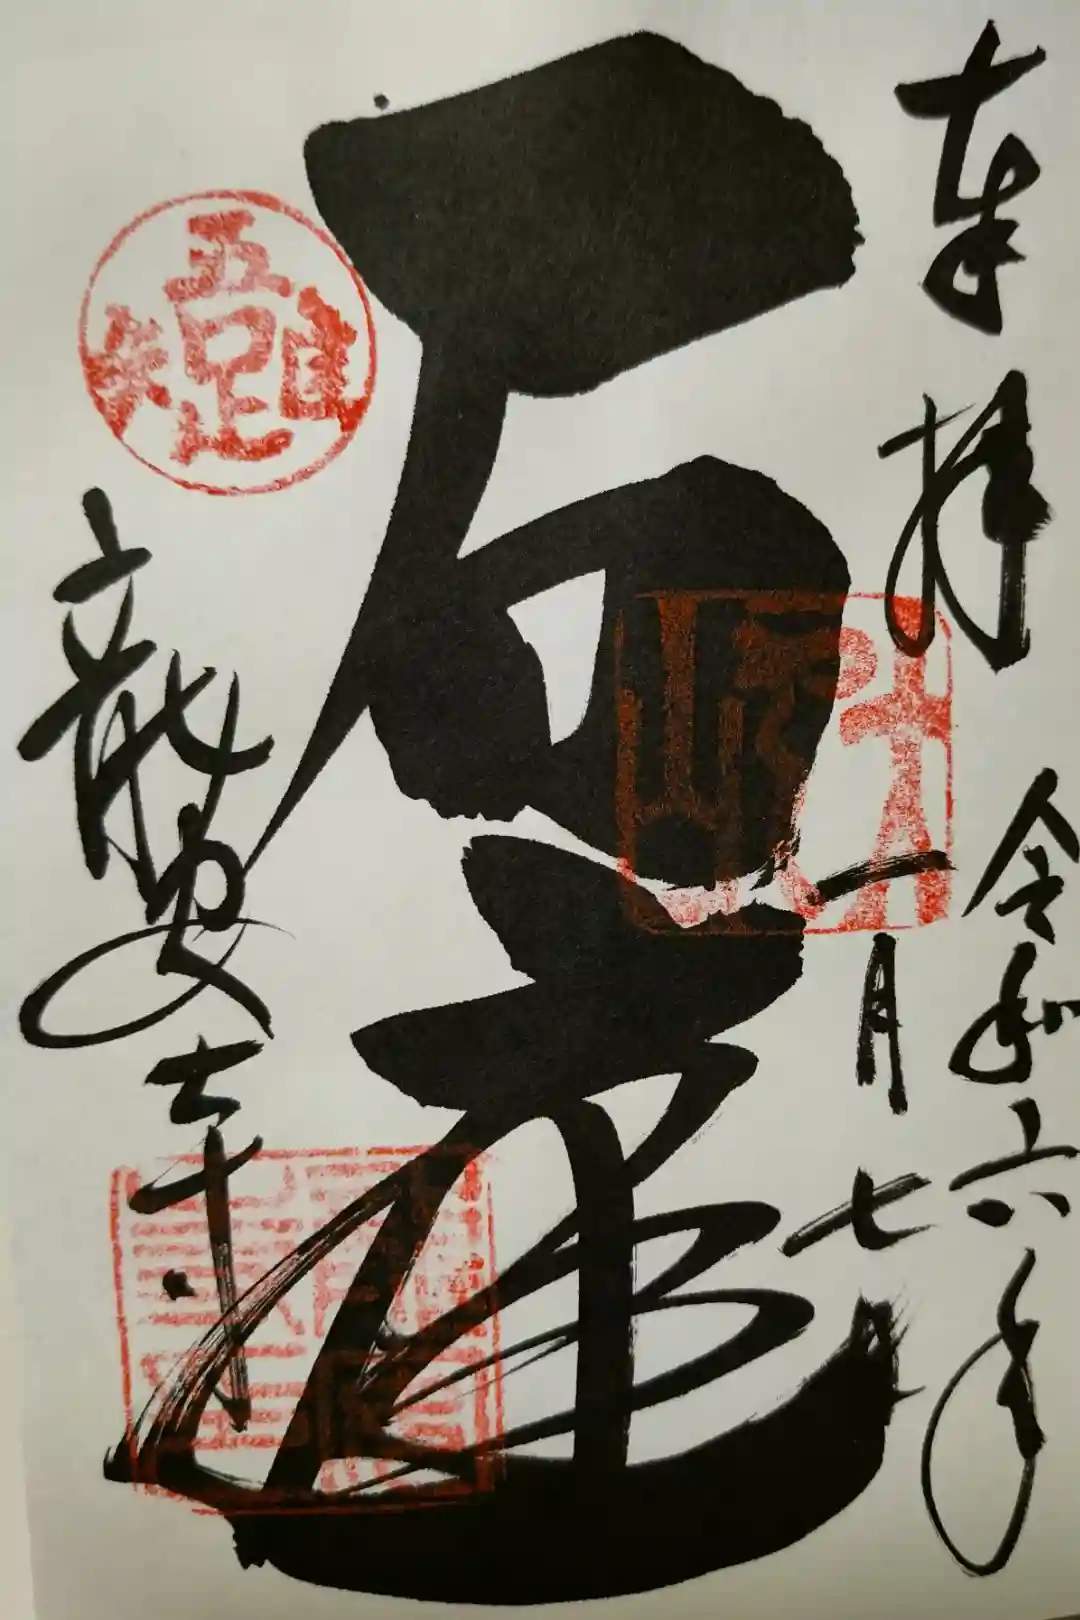 奉拝
令和六年
一月七日
石庭
龍安寺
吾唯足知